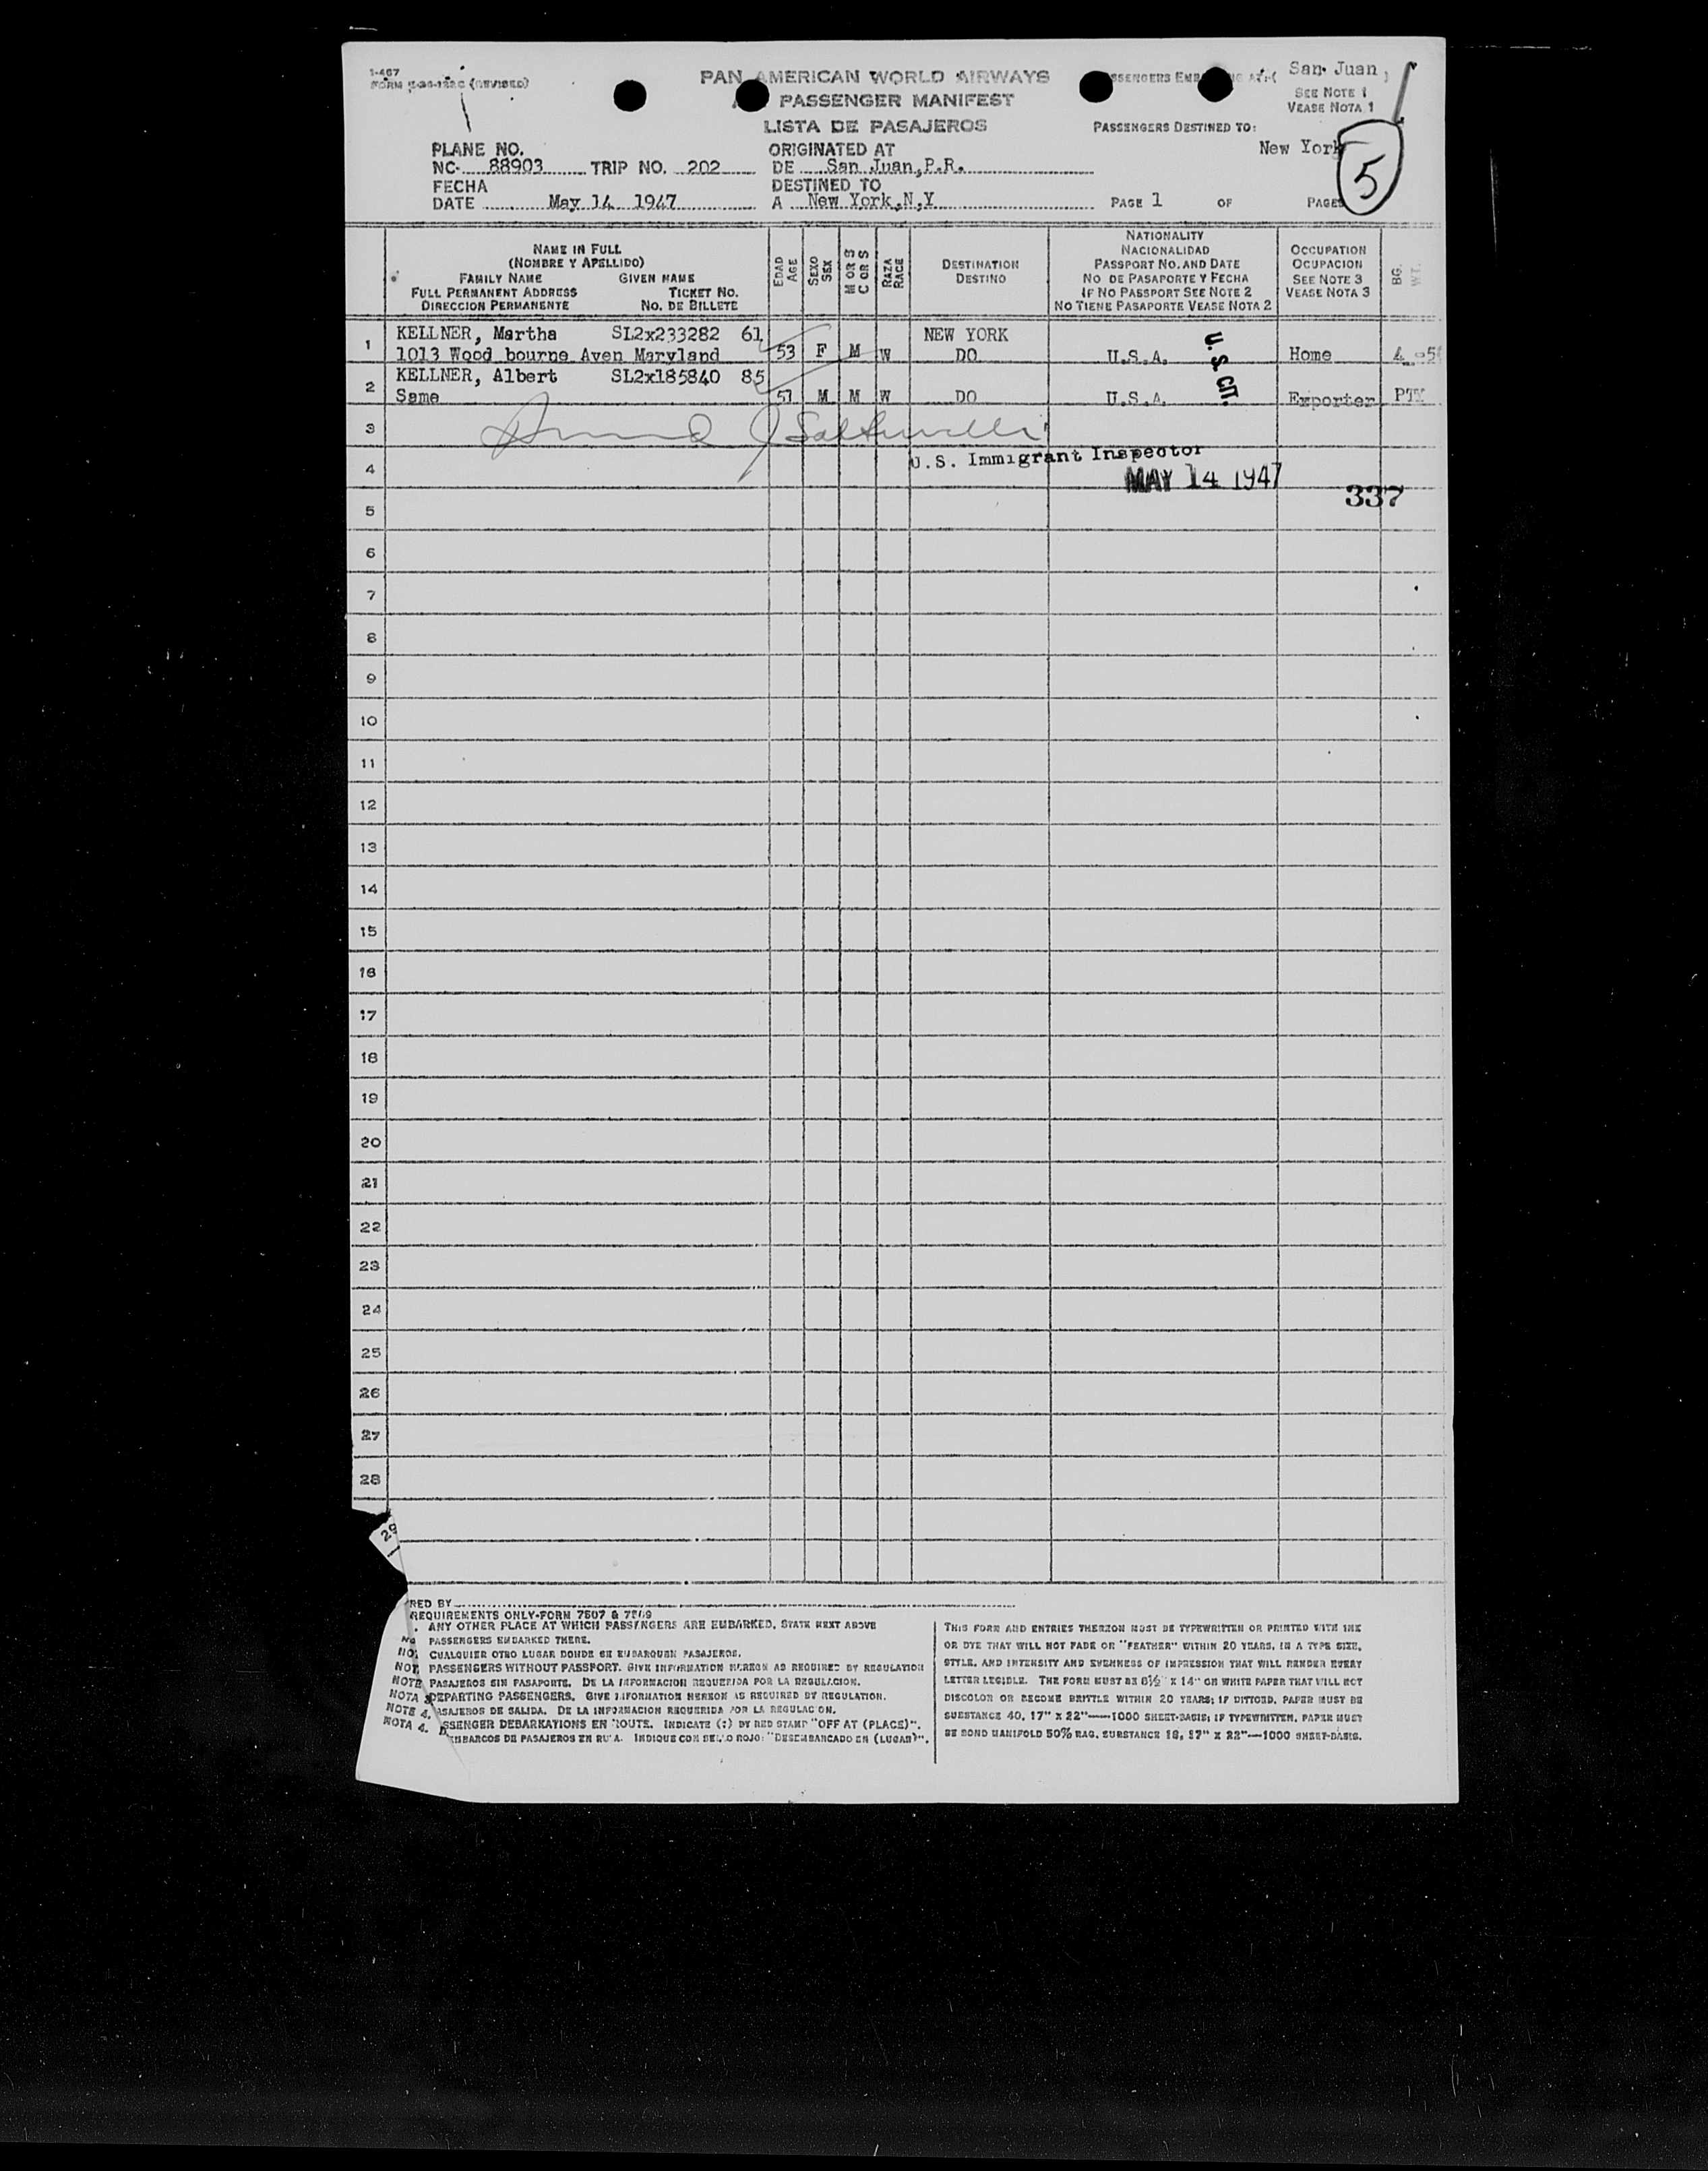 I-467
FORM (REVISED)
PAN AMERICAN WORLD AIRWAYS
PASSENGER MANIFEST
LISTA DE PASAJEROS
San Juan
SEE NOTE 1
VEASE NOTA 1
PASSENGERS DESTINED TO:
New York
5
PLANE NO.
NC- 88903 TRIP NO. 202
ORIGINATED AT
DE San Juan, P.R.
FECHA
DATE May 14 1947
DESTINED TO
A New York, N,Y
PAGE 1 OF PAGES
NAME IN FULL
(NOMBRE Y APELLIDO)
FAMILY NAME GIVEN NAME
FULL PERMANENT ADDRESS TICKET NO.
DIRECCION PERMANENTE NO. DE BILLETE
EDAD
AGE
SEXO
SEX
M OR S
C OR S
RAZA
RACE
DESTINATION
DESTINO
NATIONALITY
NACIONALIDAD
PASSPORT NO. AND DATE
NO DE PASAPORTE Y FECHA
IF NO PASSPORT SEE NOTE 2
NO TIENE PASAPORTE VEASE NOTA 2
OCCUPATION
OCUPACION
SEE NOTE 3
VEASE NOTA 3
BG.
WT.
1 KELLNER, Martha SL2x233282 61 NEW YORK
1013 Wood bourne Aven Maryland 53 F M W DO U.S.A. Home
2 KELLNER, Albert SL2x185840 85
Same 57 M M W DO U.S.A. Exporter PTY
U.S. Immigrant Inspector
MAY 14 1947
337
3
4
5
6
7
8
9
10
11
12
13
14
15
16
17
18
19
20
21
22
23
24
25
26
27
28
29
RED BY
REQUIREMENTS ONLY-FORM 7507 & 7509
ANY OTHER PLACE AT WHICH PASSENGERS ARE EMBARKED, STATE NEXT ABOVE
PASSENGERS EMBARKED THERE.
CUALQUIER OTRO LUGAR DONDE SE EMBARQUEN PASAJEROS.
PASSENGERS WITHOUT PASSPORT. GIVE INFORMATION HEREON AS REQUIRED BY REGULATION
NOTE PASAJEROS SIN PASAPORTE. DE LA INFORMACION REQUERIDA POR LA REGULACION.
NOTA DEPARTING PASSENGERS. GIVE INFORMATION HEREON AS REQUIRED BY REGULATION.
ASAJEROS DE SALIDA. DE LA INFORMACION REQUERIDA POR LA REGULACION.
NOTE 4. SSENGER DEBARKATIONS EN ROUTE. INDICATE (:) BY RED STAMP "OFF AT (PLACE)".
NOTA 4. EMBARCOS DE PASAJEROS EN RUTA. INDIQUE CON SELLO ROJO: "DESEMBARCADO EN (LUGAR)".
THIS FORM AND ENTRIES THEREON MUST BE TYPEWRITTEN OR PRINTED WITH INK
OR DYE THAT WILL NOT FADE OR "FEATHER" WITHIN 20 YEARS, IN A TYPE SIZE,
STYLE, AND INTENSITY AND EVENNESS OF IMPRESSION THAT WILL RENDER EVERY
LETTER LEGIBLE. THE FORM MUST BE 8½" X 14" ON WHITE PAPER THAT WILL NOT
DISCOLOR OR BECOME BRITTLE WITHIN 20 YEARS; IF DITTOED, PAPER MUST BE
SUBSTANCE 40, 17" X 22"—1000 SHEET-BASIS; IF TYPEWRITTEN, PAPER MUST
BE BOND MANIFOLD 50% RAG, SUBSTANCE 18, 17" X 22"—1000 SHEET-BASIS.